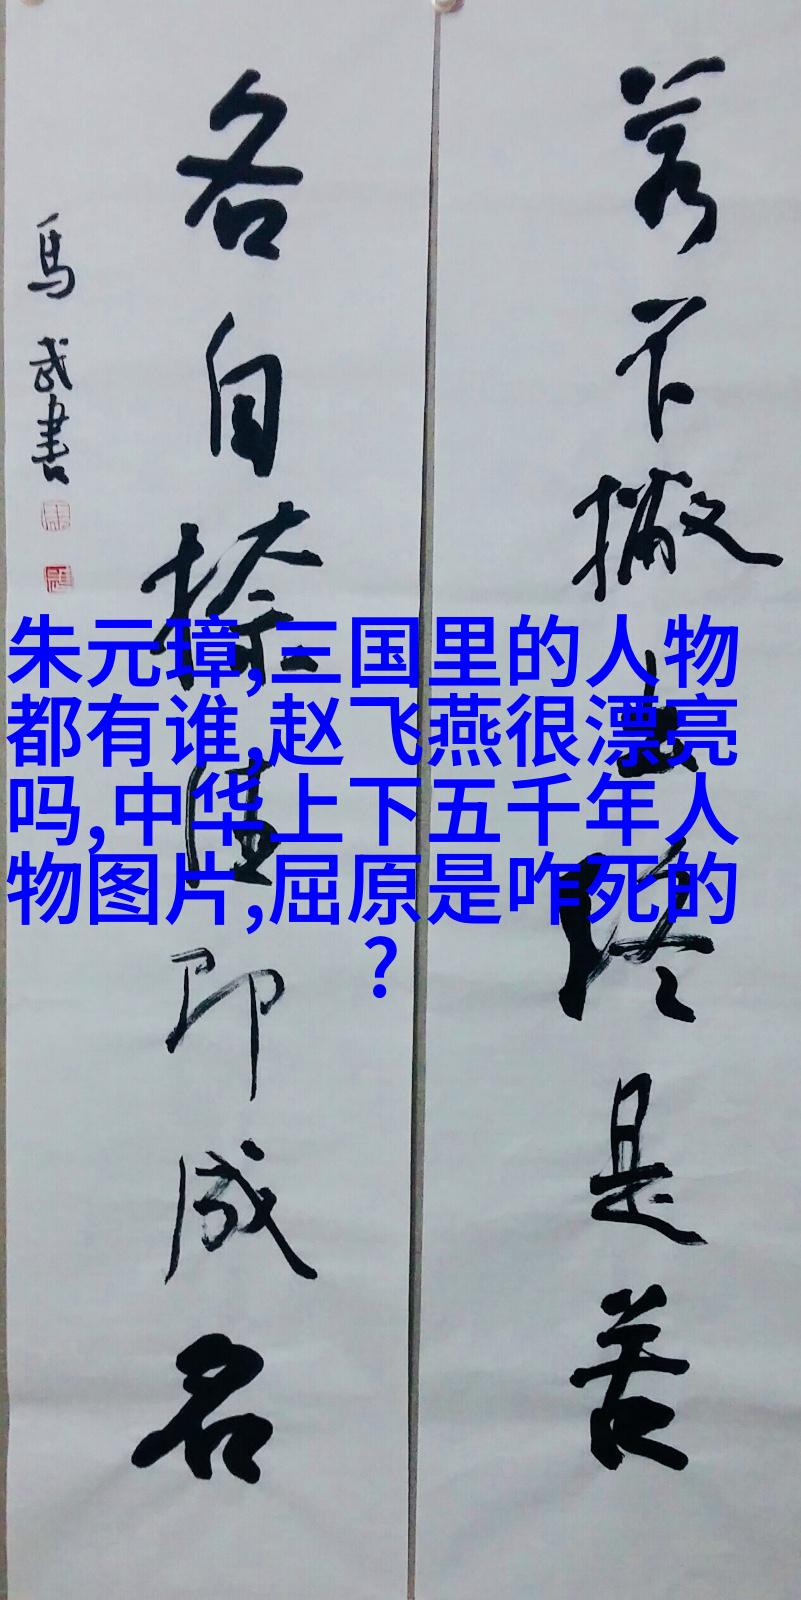 若不撇終是苦
各自捺即成名
馬武書
朱元璋,三国里的人物
都有谁,赵飞燕很漂亮
吗,中华上下五千年人
物图片,屈原是咋死的
?